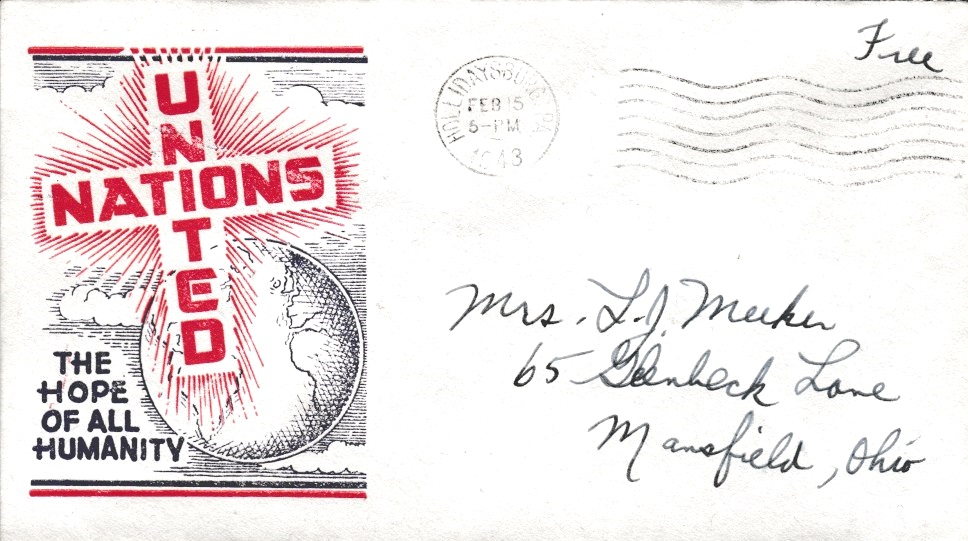 UNITED
NATIONS
THE
HOPE
OF ALL
HUMANITY
HOLLIDAYSBURG, PA.
FEB 15
5-PM
1943
Free
Mrs. L.J. Meeker
65 Glenbeck Lane
Mansfield, Ohio